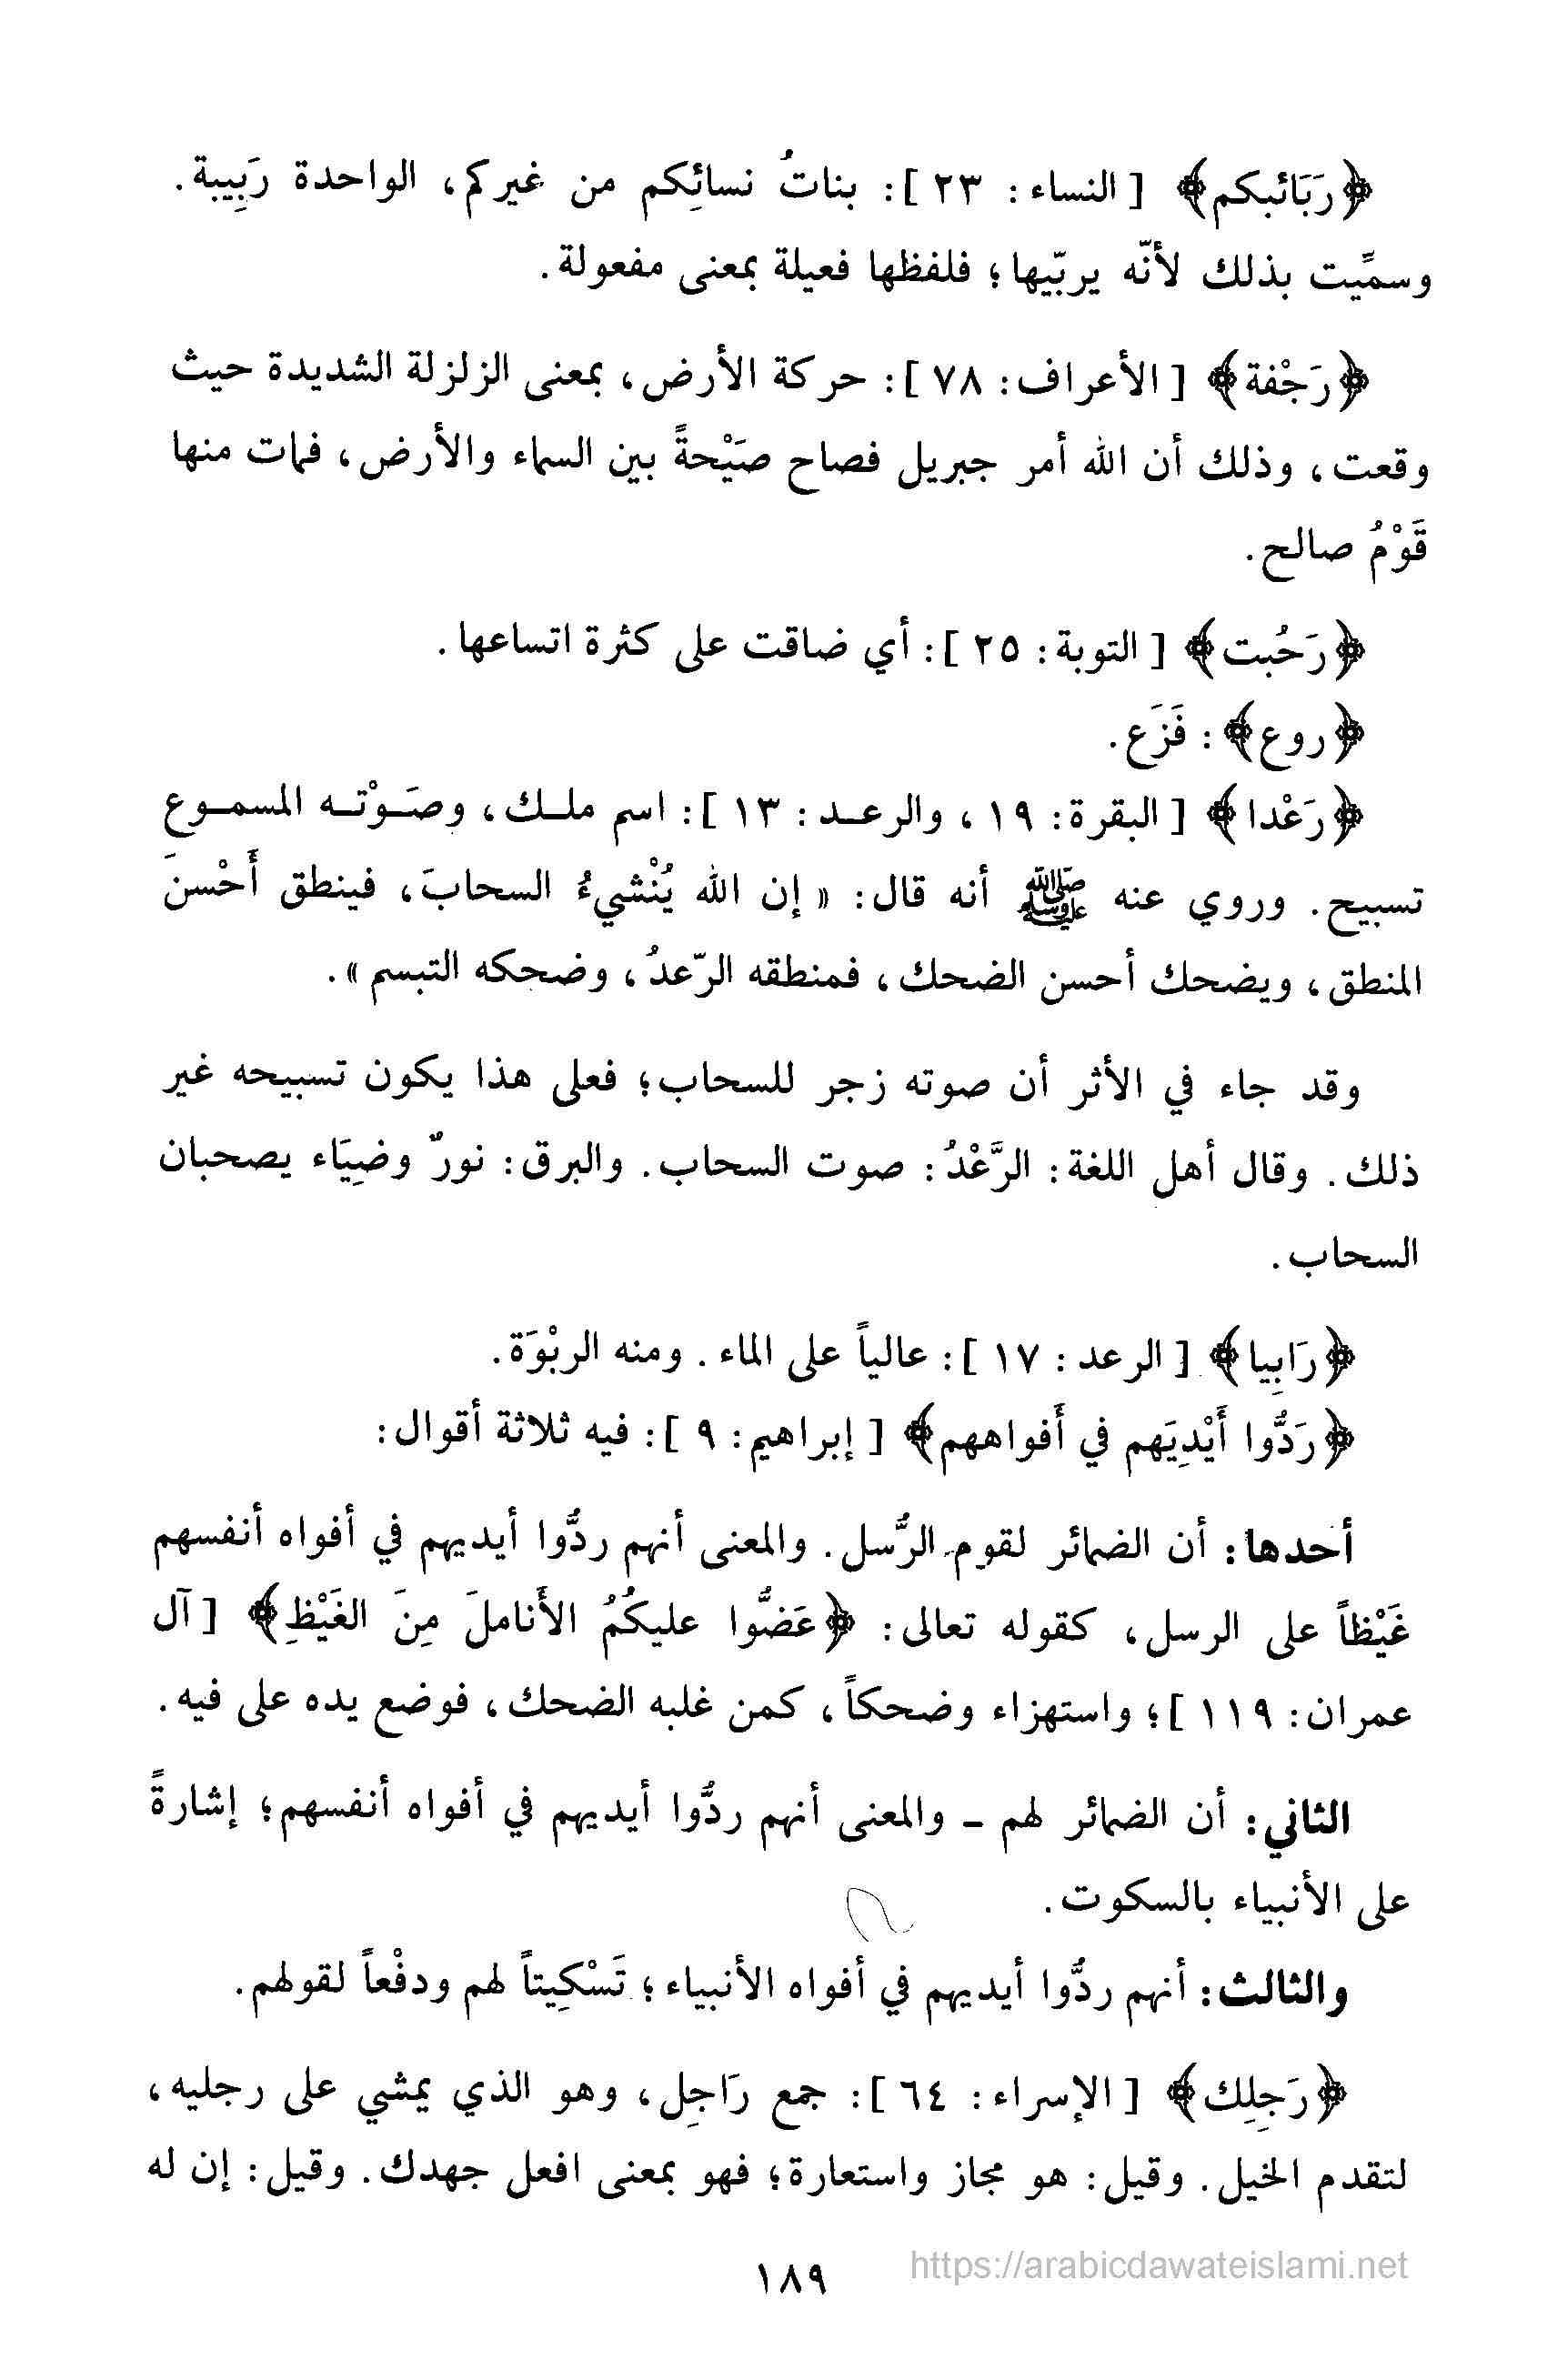 ﴿رَبَائبكم﴾ [ النساء : ٢٣ ]: بناتُ نسائِكم من غيركم، الواحدة رَبِيبة.
وسمِّيت بذلك لأنّه يربّيها؛ فلفظها فعيلة بمعنى مفعولة.
﴿رَجْفة﴾ [ الأعراف: ٧٨ ]: حركة الأرض، بمعنى الزلزلة الشديدة حيث
وقعت، وذلك أن الله أمر جبريل فصاح صَيْحةً بين السماء والأرض، فمات منها
قَوْمُ صالح.
﴿رَحُبت﴾ [ التوبة: ٢٥ ]: أي ضاقت على كثرة اتساعها.
﴿روع﴾: فَزَع.
﴿رَعْدا﴾ [ البقرة: ١٩، والرعـد: ١٣ ]: اسم ملـك، وصَـوْتـه المسمـوع
تسبيح. وروي عنه ﷺ أنه قال: « إن الله يُنْشيءُ السحابَ، فينطق أَحْسنَ
المنطق، ويضحك أحسن الضحك، فمنطقه الرّعدُ، وضحكه التبسم ».
وقد جاء في الأثر أن صوته زجر للسحاب؛ فعلى هذا يكون تسبيحه غير
ذلك. وقال أهل اللغة: الرَّعْدُ: صوت السحاب. والبرق: نورٌ وضِيَاء يصحبان
السحاب.
﴿رَابِيا﴾ [ الرعد : ١٧ ]: عالياً على الماء. ومنه الربْوَة.
﴿رَدُّوا أَيْدِيَهم في أَفواههم﴾ [ إبراهيم: ٩ ]: فيه ثلاثة أقوال:
أحدها: أن الضمائر لقوم الرُّسل. والمعنى أنهم ردُّوا أيديهم في أفواه أنفسهم
غَيْظاً على الرسل، كقوله تعالى: ﴿عَضُّوا عليكُمُ الأَناملَ مِنَ الغَيْظِ﴾ [ آل
عمران: ١١٩ ]؛ واستهزاء وضحكاً، كمن غلبه الضحك، فوضع يده على فيه.
الثاني: أن الضمائر لهم - والمعنى أنهم ردُّوا أيديهم في أفواه أنفسهم؛ إشارةً
على الأنبياء بالسكوت.
والثالث: أنهم ردُّوا أيديهم في أفواه الأنبياء؛ تَسْكِيتاً لهم ودفْعاً لقولهم.
﴿رَجِلِك﴾ [ الإسراء : ٦٤ ]: جمع رَاجِل، وهو الذي يمشي على رجليه،
لتقدم الخيل. وقيل: هو مجاز واستعارة؛ فهو بمعنى افعل جهدك. وقيل: إن له
١٨٩
https://arabicdawateislami.net